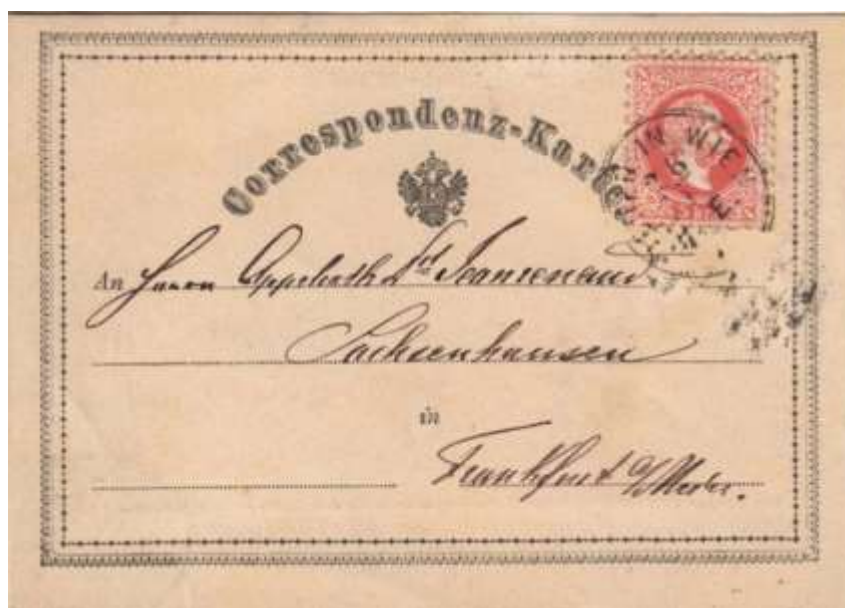 Correspondenz-Karte
IN WIEN
An Herrn Appellrath Dr
Sachsenhausen
in
Frankfurt a/Main.